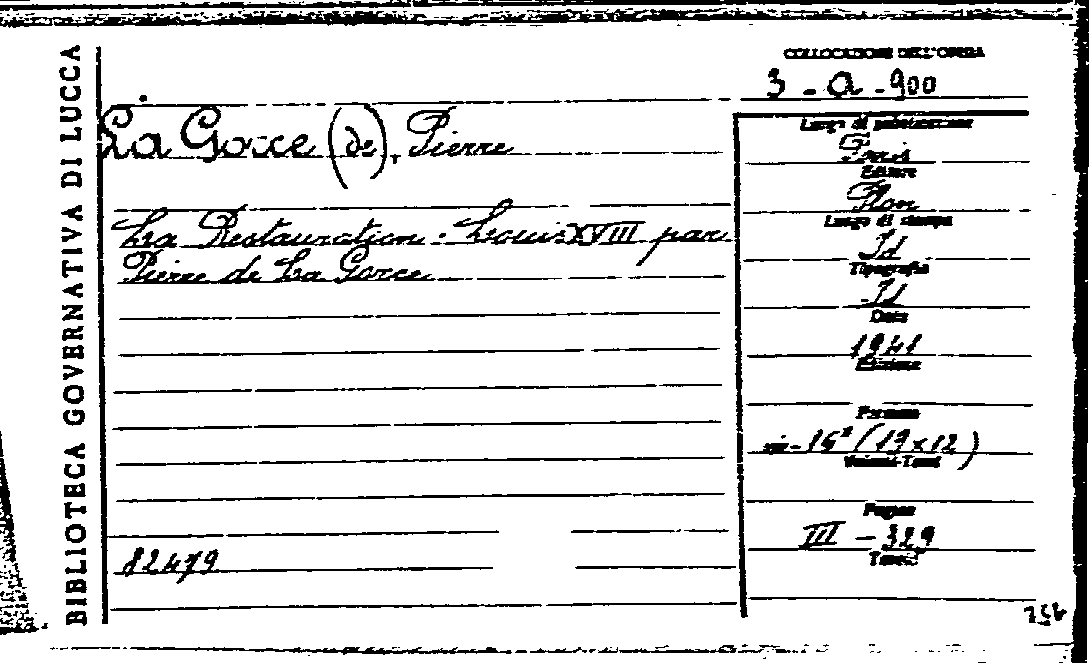 BIBLIOTECA GOVERNATIVA DI LUCCA
COLLOCAZIONE DELL'OPERA
3 - a - 900
La Gorce (de), Pierre
La Restauration. Louis XVIII par
Pierre de La Gorce
82479
Luogo di pubblicazione
Paris
Editore
Plon
Luogo di stampa
Id
Tipografia
Id
Data
1941
Edizione
Formato
in-16° (19x12)
Volumi-Tomi
Pagine
III - 329
Tavole